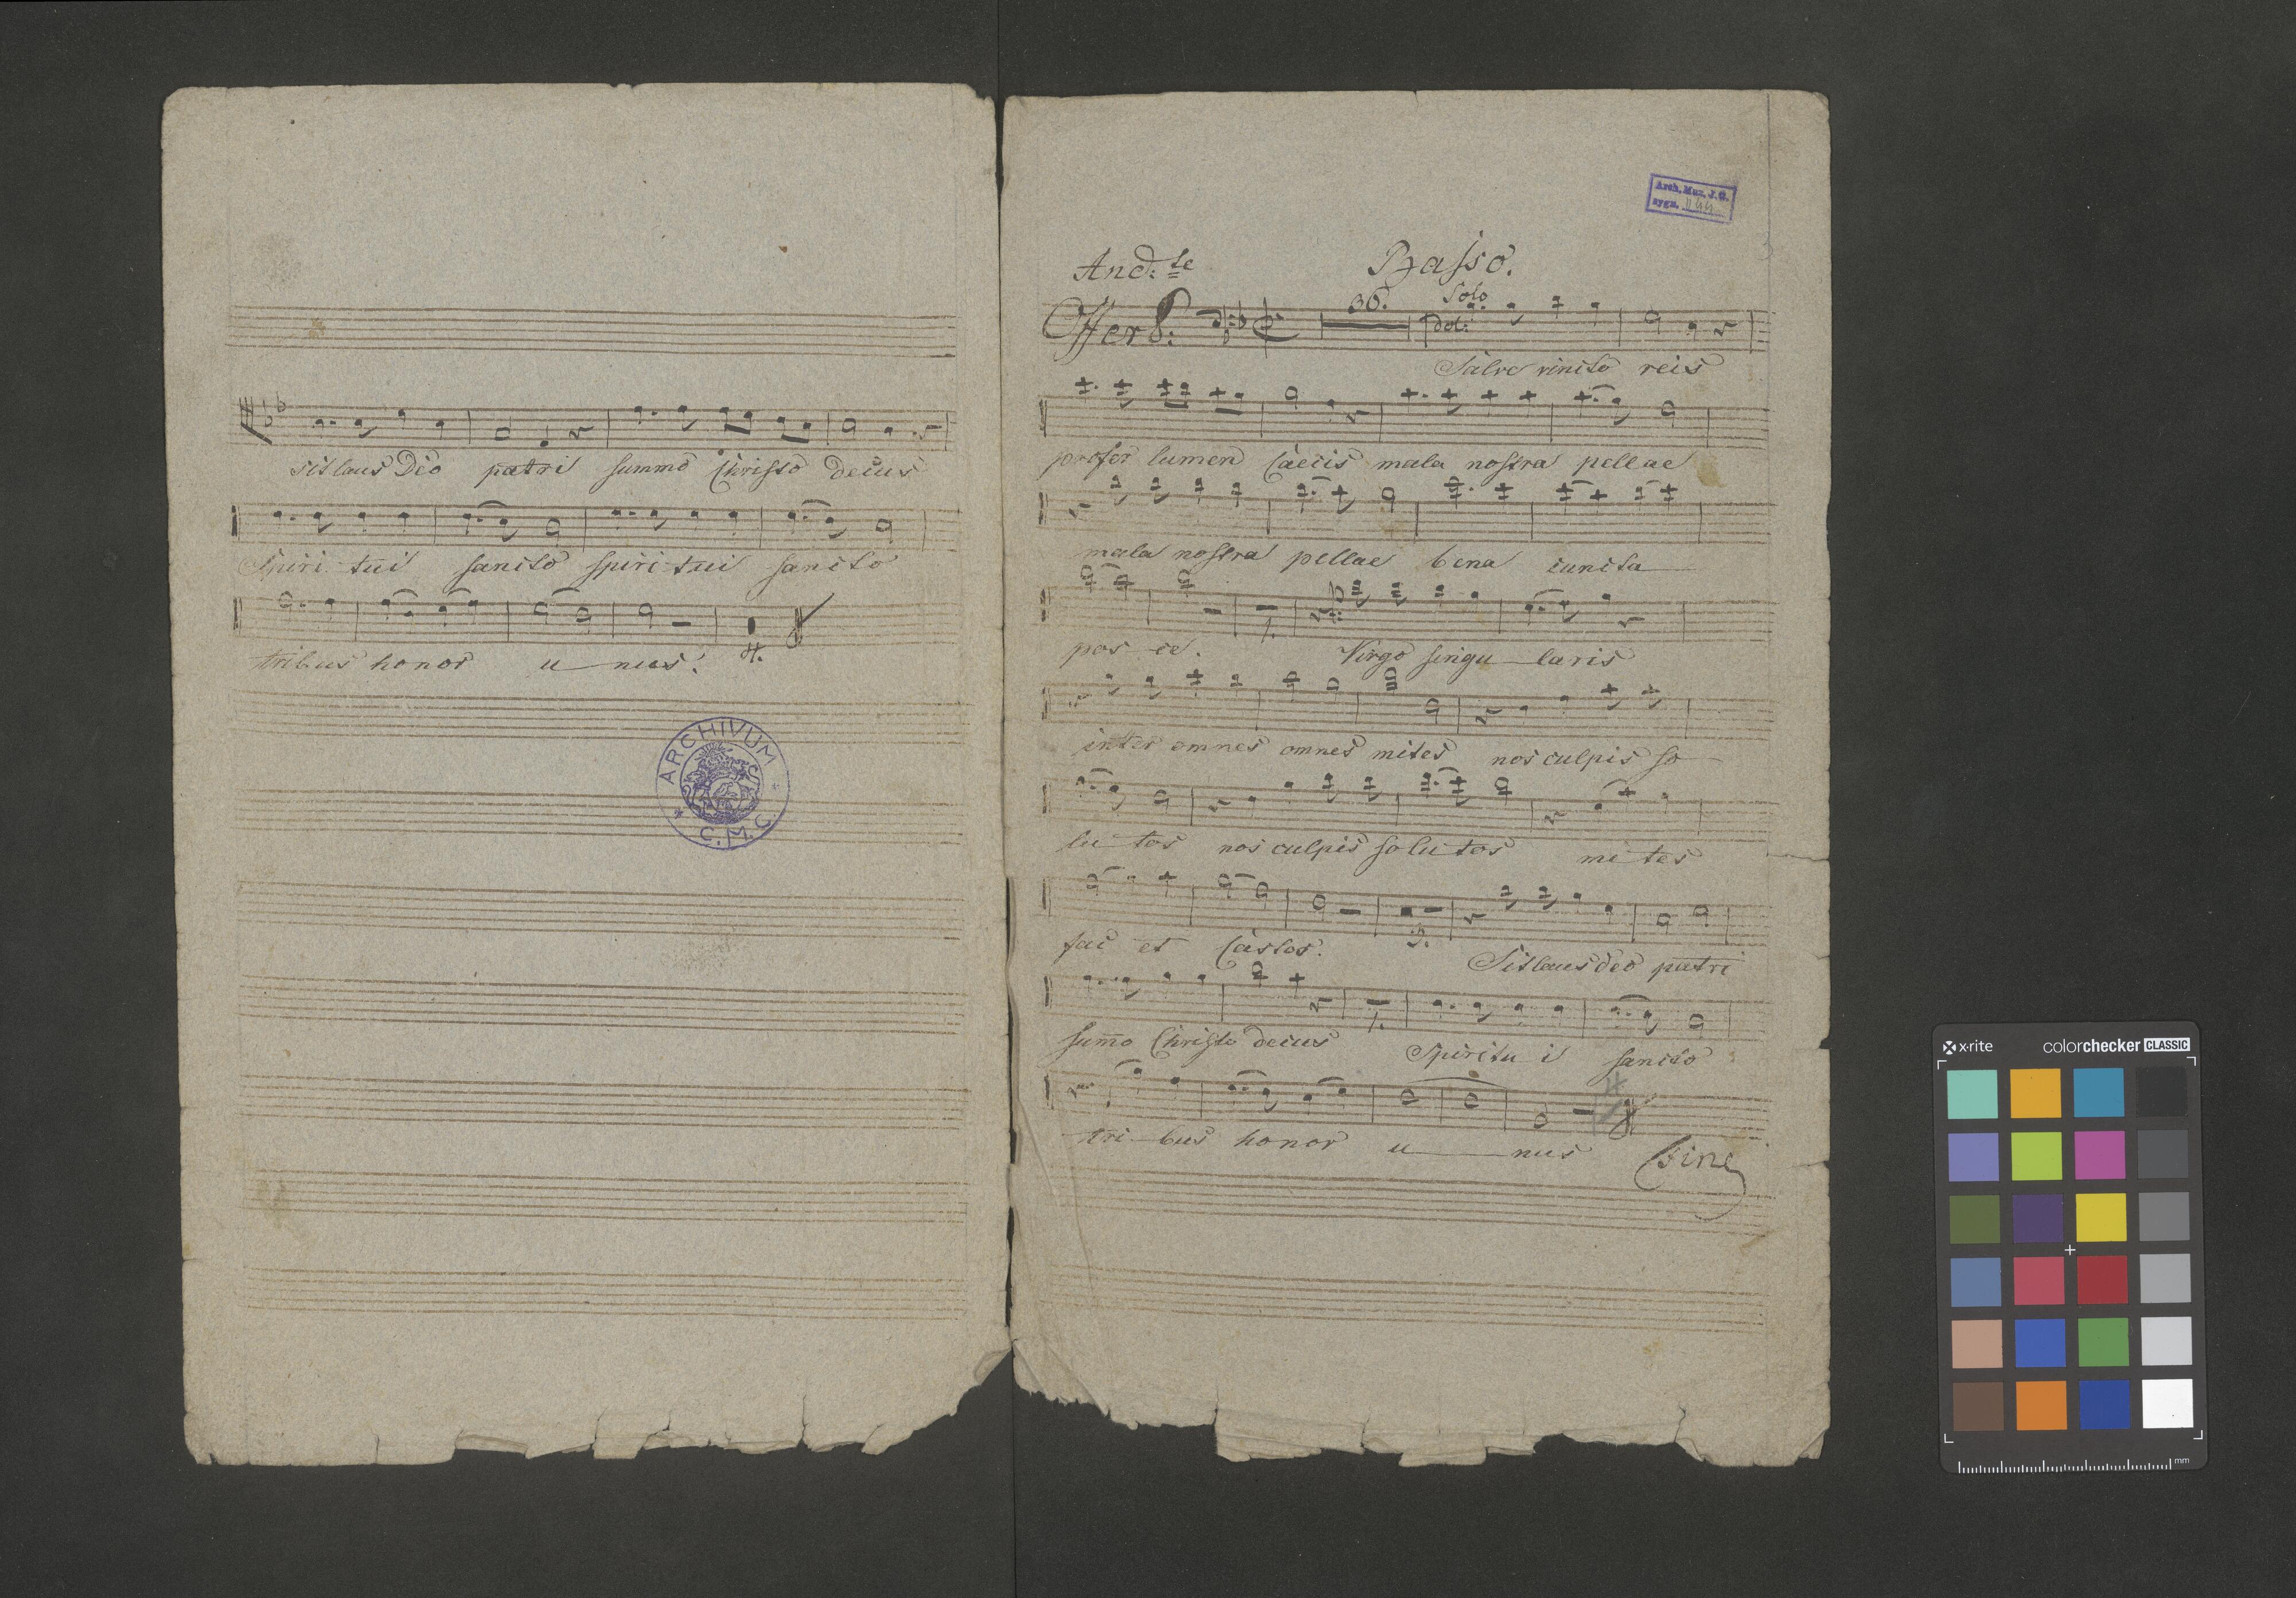 sit laus Deo patri summo Christo decus
Spiri tui sancto spiri tui sancto
tribus honor u nus.
4.
ARCHIVUM
C.M.C
Arch. Muz. J.G.
sygn. II 44
And:te Basso.
Offert: 36. Solo
dol:
Salve vincto reis
profer lumen Caecis mala nostra pellae
mala nostra pellae bena cuncta
1.
pos ce. Virgo singu laris
inter omnes omnes mites nos culpis so
lu tos nos culpis so lu tos mi tes
3.
fac et Castos. Sit laus deo patri
1.
sum̄o Christo decus Spiritu i sancto
tri bus honor u nus Fine
x·rite colorchecker CLASSIC
mm